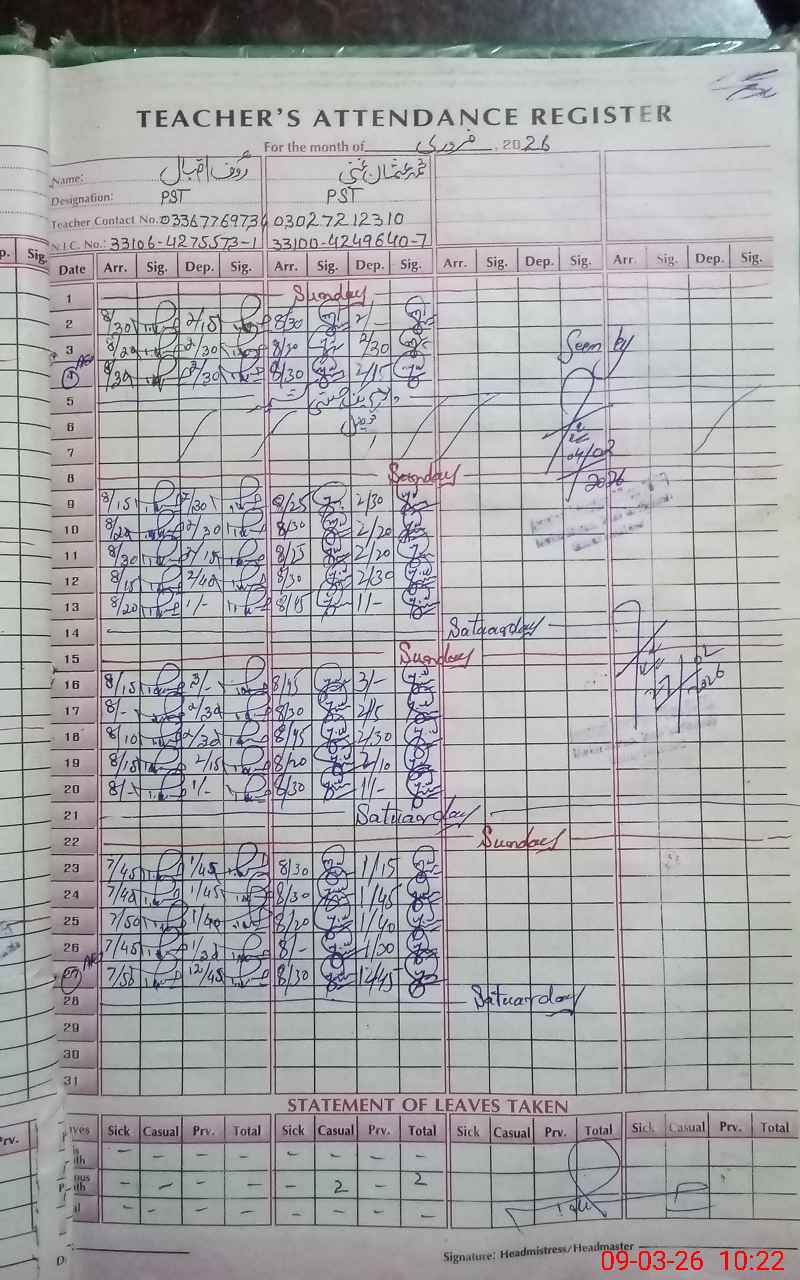 TEACHER'S ATTENDANCE REGISTER
For the month of فروری, 2026
Name: رؤف اقبال
Designation: PST PST
Teacher Contact No. 03027212310
N.I.C. No.: 33106-4275573-1 33100-4249640-7
Date Arr. Sig. Dep. Sig. Arr. Sig. Dep. Sig. Arr. Sig. Dep. Sig. Arr. Sig. Dep. Sig.
1 Sunday
2 8/30 2/15 8/30 2/-
3 8/20 2/30 8/30 2/30
Seen by
4 8/30 2/30 8/30 2/15
5
6
7 04/02
8 Sunday 2026
9 8/15 2/30 8/25 2/30
10 8/20 2/30 8/30 2/20
11 8/30 2/15 8/15 2/20
12 8/15 2/40 8/30 2/30
13 8/20 1/- 8/15 1/-
14 Satuarday
15 Sunday
16 8/15 3/- 8/45 3/-
17 8/- 2/30 8/30 2/15
18 8/10 2/30 8/45 2/30
19 8/15 2/15 8/20 2/10
20 8/- 1/- 8/30 1/-
21 Satuarday
22 Sunday
23 7/45 1/45 8/30 1/15
24 7/45 1/45 8/30 1/45
25 7/50 1/40 8/20 1/40
26 7/45 8/-
27 7/50 12/45 8/30 12/45
28 Satuarday
29
30
31
STATEMENT OF LEAVES TAKEN
Sick Casual Prv. Total Sick Casual Prv. Total Sick Casual Prv. Total Sick Casual Prv. Total
- - - - - - - -
- - - - - 2 - 2
- - - - - - - -
Signature: Headmistress/Headmaster
09-03-26 10:22